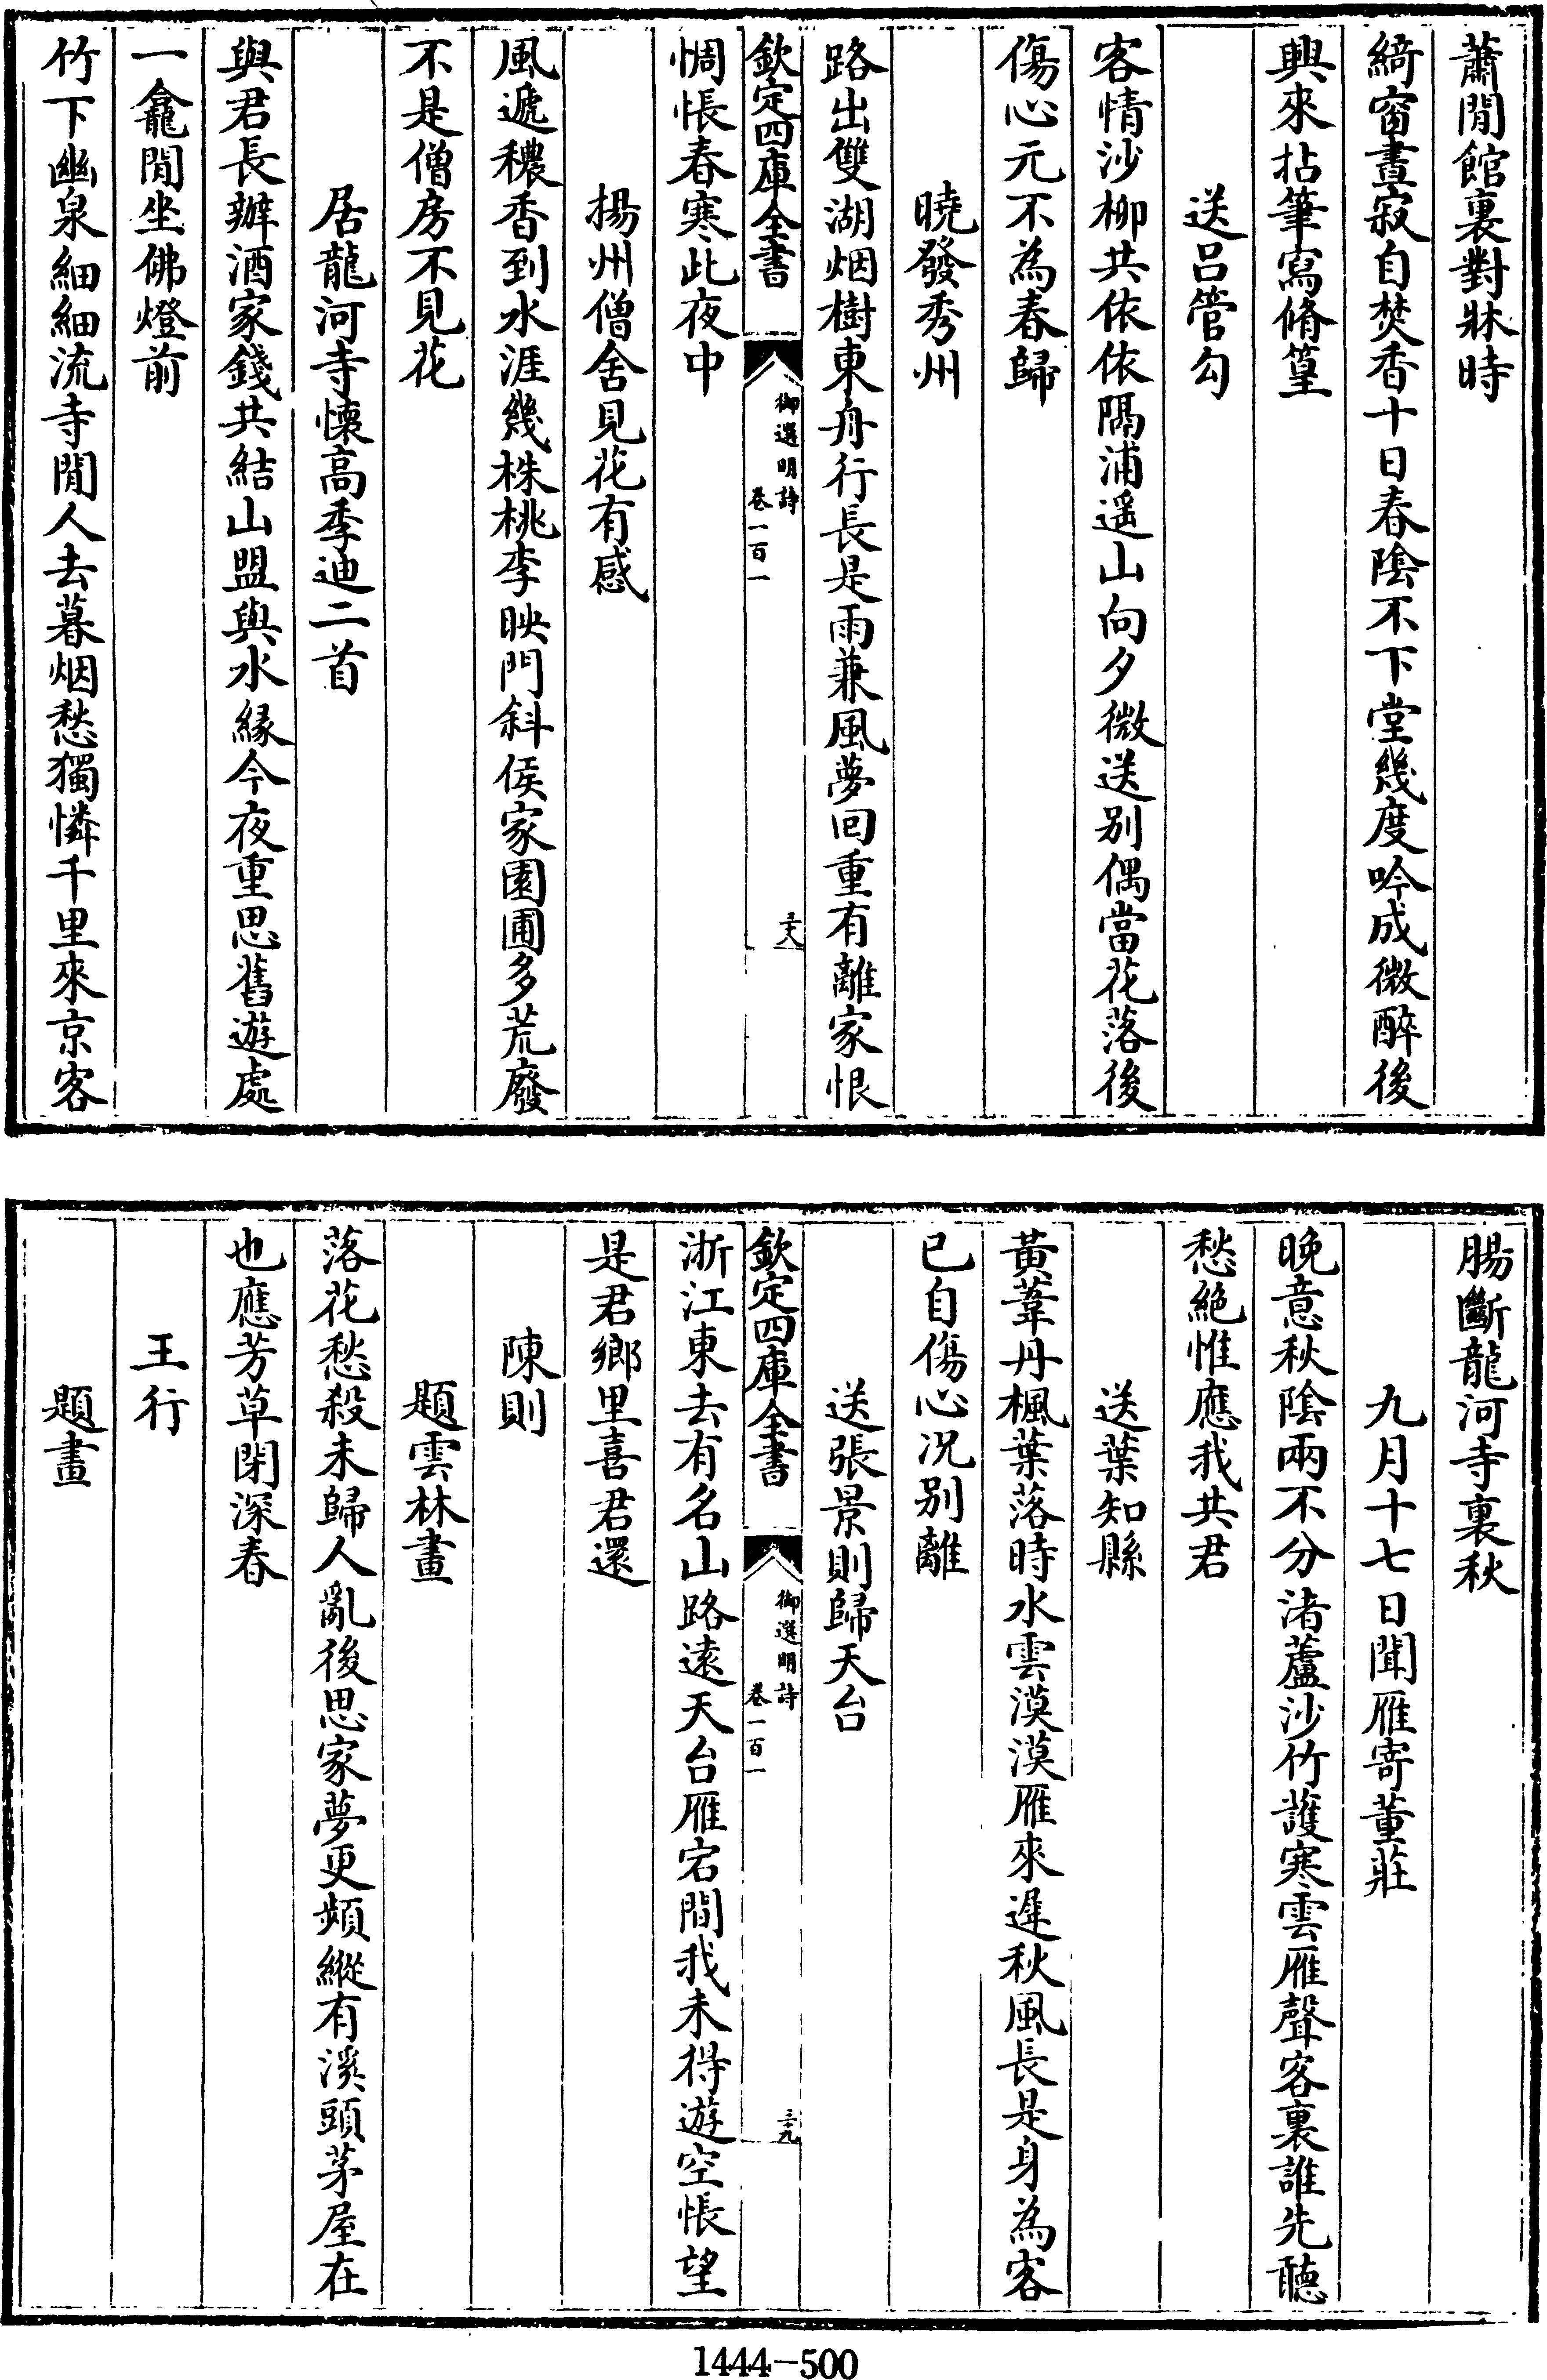 蕭閒館裏對牀時
綺窗晝寂自焚香十日春陰不下堂幾度吟成微醉後
興來拈筆寫脩篁
送呂管勾
客情沙柳共依依隔浦遥山向夕微送别偶當花落後
傷心元不為春歸
曉發秀州
路出雙湖烟樹東舟行長是雨兼風夢回重有離家恨
欽定四庫全書
御選明詩
卷一百一
三十八
惆悵春寒此夜中
揚州僧舍見花有感
風遞穠香到水涯幾株桃李映門斜侯家園圃多荒廢
不是僧房不見花
居龍河寺懷高季迪二首
與君長辦酒家錢共結山盟與水緣今夜重思舊遊處
一龕閒坐佛燈前
竹下幽泉細細流寺閒人去暮烟愁獨憐千里來京客
腸斷龍河寺裏秋
九月十七日聞雁寄董莊
晚意秋陰兩不分渚蘆沙竹護寒雲雁聲客裏誰先聽
愁絶惟應我共君
送葉知縣
黄葦丹楓葉落時水雲漠漠雁來遲秋風長是身為客
已自傷心况别離
送張景則歸天台
欽定四庫全書
御選明詩
卷一百一
三十九
浙江東去有名山路遠天台雁宕間我未得遊空悵望
是君鄉里喜君還
陳則
題雲林畫
落花愁殺未歸人亂後思家夢更頻縱有溪頭茅屋在
也應芳草閉深春
王行
題畫
1444-500